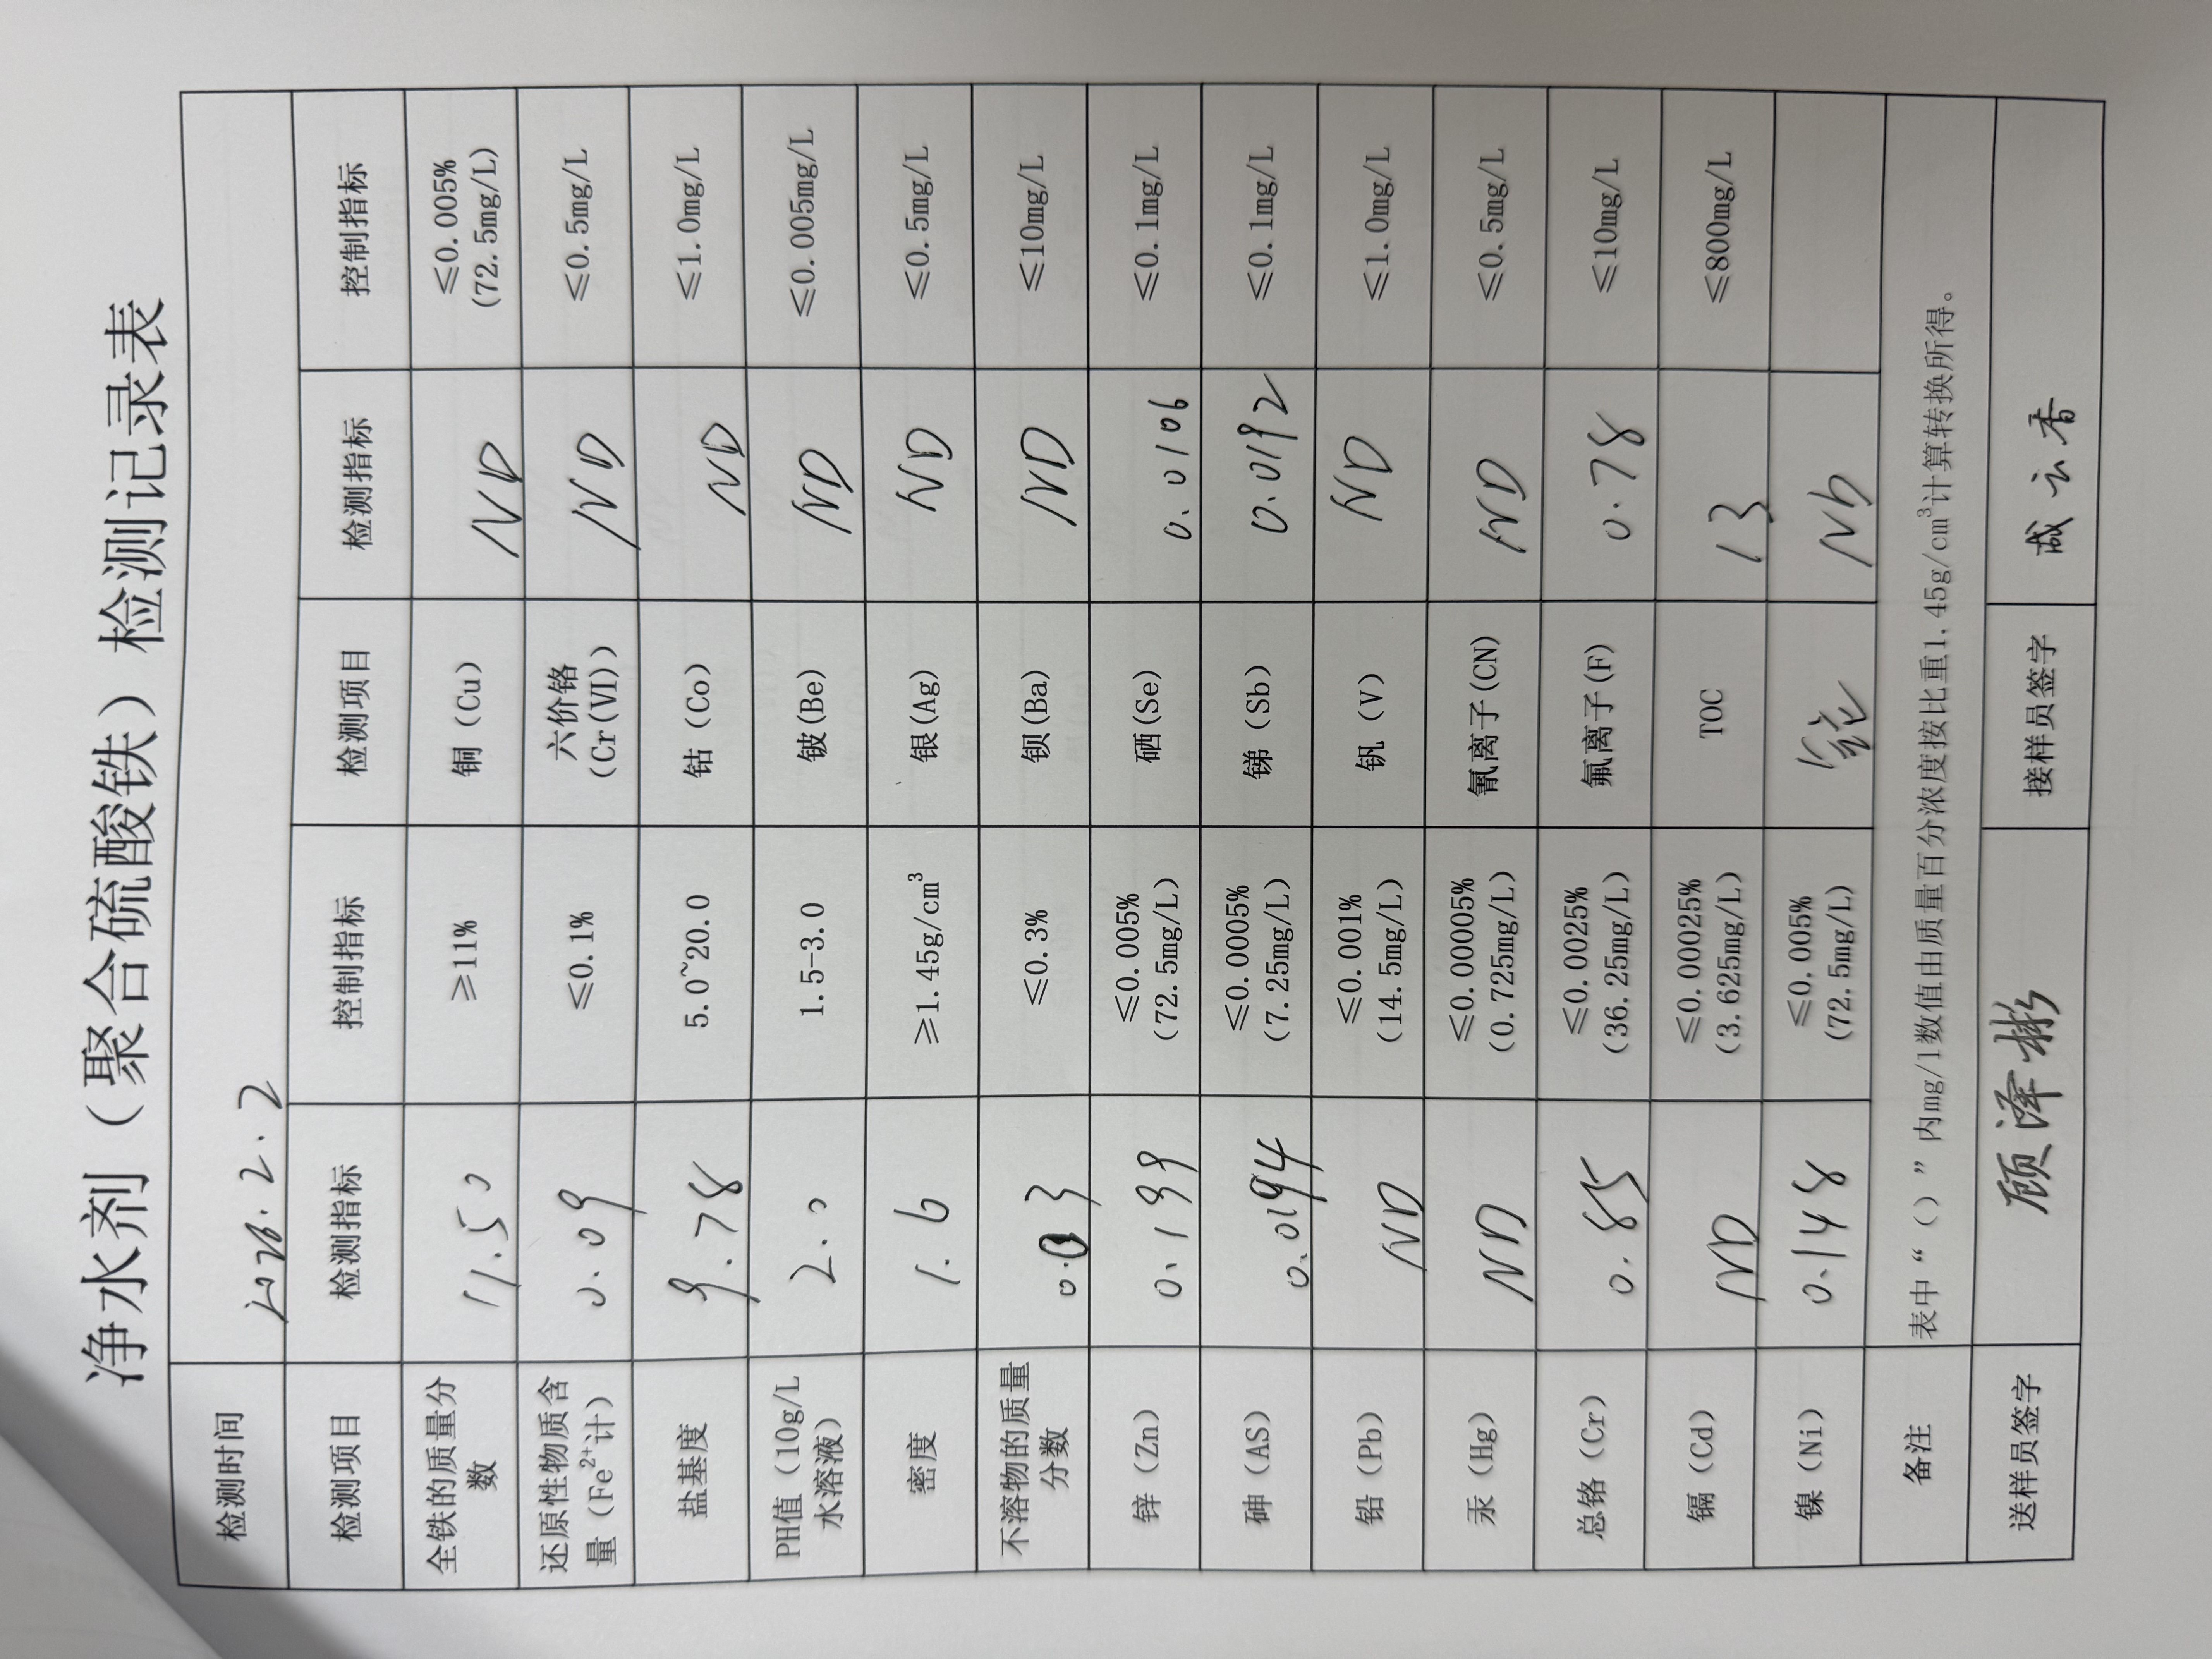 净水剂（聚合硫酸铁）检测记录表
检测时间
检测项目 检测指标 控制指标 检测项目 检测指标 控制指标
全铁的质量分数 11.50 ≥11% 铜（Cu） ND ≤0.005% (72.5mg/L)
还原性物质含量（Fe²⁺计） 0.09 ≤0.1% 六价铬 (Cr(VI)) ND ≤0.5mg/L
盐基度 9.78 5.0~20.0 钴（Co） ND ≤1.0mg/L
PH值（10g/L水溶液） 2.0 1.5-3.0 铍(Be) ND ≤0.005mg/L
密度 1.6 ≥1.45g/cm³ 银(Ag) ND ≤0.5mg/L
不溶物的质量分数 ≤0.3% 钡(Ba) ND ≤10mg/L
锌（Zn） 0.199 ≤0.005% (72.5mg/L) 硒(Se) 0.0106 ≤0.1mg/L
砷（AS） 0.0194 ≤0.0005% (7.25mg/L) 锑（Sb） 0.0192 ≤0.1mg/L
铅（Pb） ND ≤0.001% (14.5mg/L) 钒（V） ND ≤1.0mg/L
汞（Hg） ND ≤0.00005% (0.725mg/L) 氰离子(CN) ND ≤0.5mg/L
总铬（Cr） 0.85 ≤0.0025% (36.25mg/L) 氟离子(F) 0.78 ≤10mg/L
镉（Cd） ND ≤0.00025% (3.625mg/L) TOC 13 ≤800mg/L
镍（Ni） 0.148 ≤0.005% (72.5mg/L) ND
备注 表中“（）”内mg/l数值由质量百分浓度按比重1.45g/cm³计算转换所得。
送样员签字 顾泽彬 接样员签字 臧云香